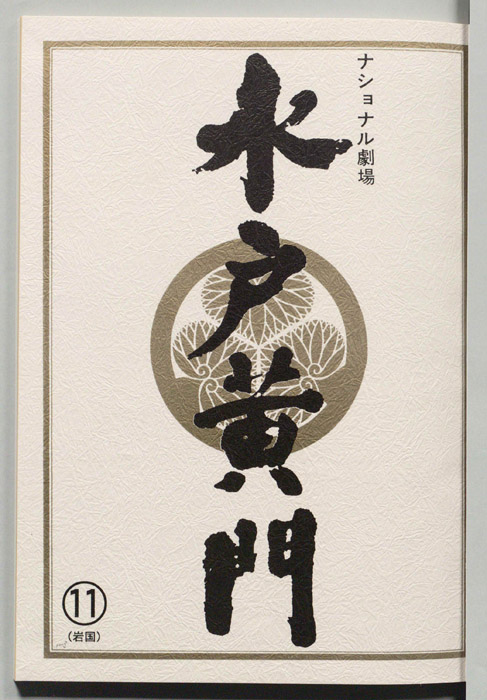 ナショナル劇場
水戸黄門
⑪
(岩国)